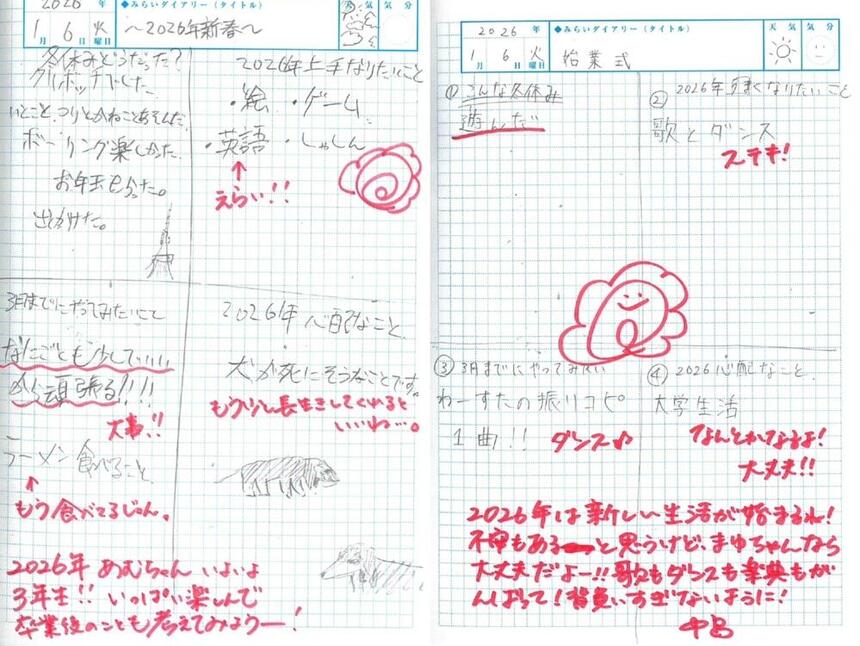 2026 年 ◆みらいダイアリー（タイトル） 天気 気分
1月 6日 火曜日 〜2026年新春〜
冬休みどうだった？
クリボッチでした。
いとこと、つりとかねことあそんだ。
ボーリング楽しかった。
お年玉もらった。
出かけた。
2026年上手なりたいこと
・絵 ・ゲーム
・英語 ・しゃしん
↑
えらい!!
3月までにやってみたいこと
なにごとも少しでいい
から頑張る!!!!
大事!!
ラーメン食べること
↑
もう食べてるじゃん。
2026年 心配なこと
犬が死にそうなことです。
もう少し長生きしてくれると
いいね…。
2026年 あむちゃん いよいよ
3年生!! いっぱい楽しんで
卒業後のことも考えてみようー！
2026 年 ◆みらいダイアリー（タイトル） 天気 気分
1月 6日 火曜日 始業式
① こんな冬休み
遊んだ
② 2026年うまくなりたいこと
歌とダンス
ステキ!
③ 3月までにやってみたい
わーすたの振りコピ
1曲!! ダンス♪
④ 2026 心配なこと
大学生活
なんとかなるよ!
大丈夫!!
2026年は新しい生活が始まるね!
不安もあると思うけど、まゆちゃんなら
大丈夫だよー!! 歌もダンスも楽典もが
んばって! 背負いすぎないように!
中島